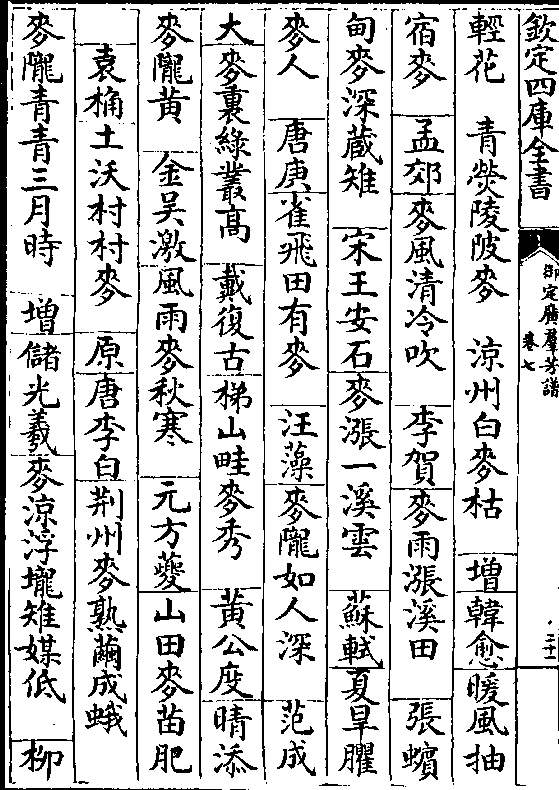 欽定四庫全書
御定廣羣芳譜
卷七
三十一
輕花　青熒陵陂麥　涼州白麥枯　增韓愈暖風抽
宿麥　孟郊麥風清冷吹　李賀麥雨漲溪田　張蠙
甸麥深藏雉　宋王安石麥漲一溪雲　蘇軾夏旱臞
麥人　唐庚雀飛田有麥　汪藻麥隴如人深　范成
大麥裏綠叢髙　戴復古梯山畦麥秀　黃公度晴添
麥隴黃　金吴激風雨麥秋寒　元方夔山田麥苗肥
袁桷土沃村村麥　原唐李白荆州麥熟繭成蛾
麥隴青青三月時　增儲光羲麥涼浮壠雉媒低　柳